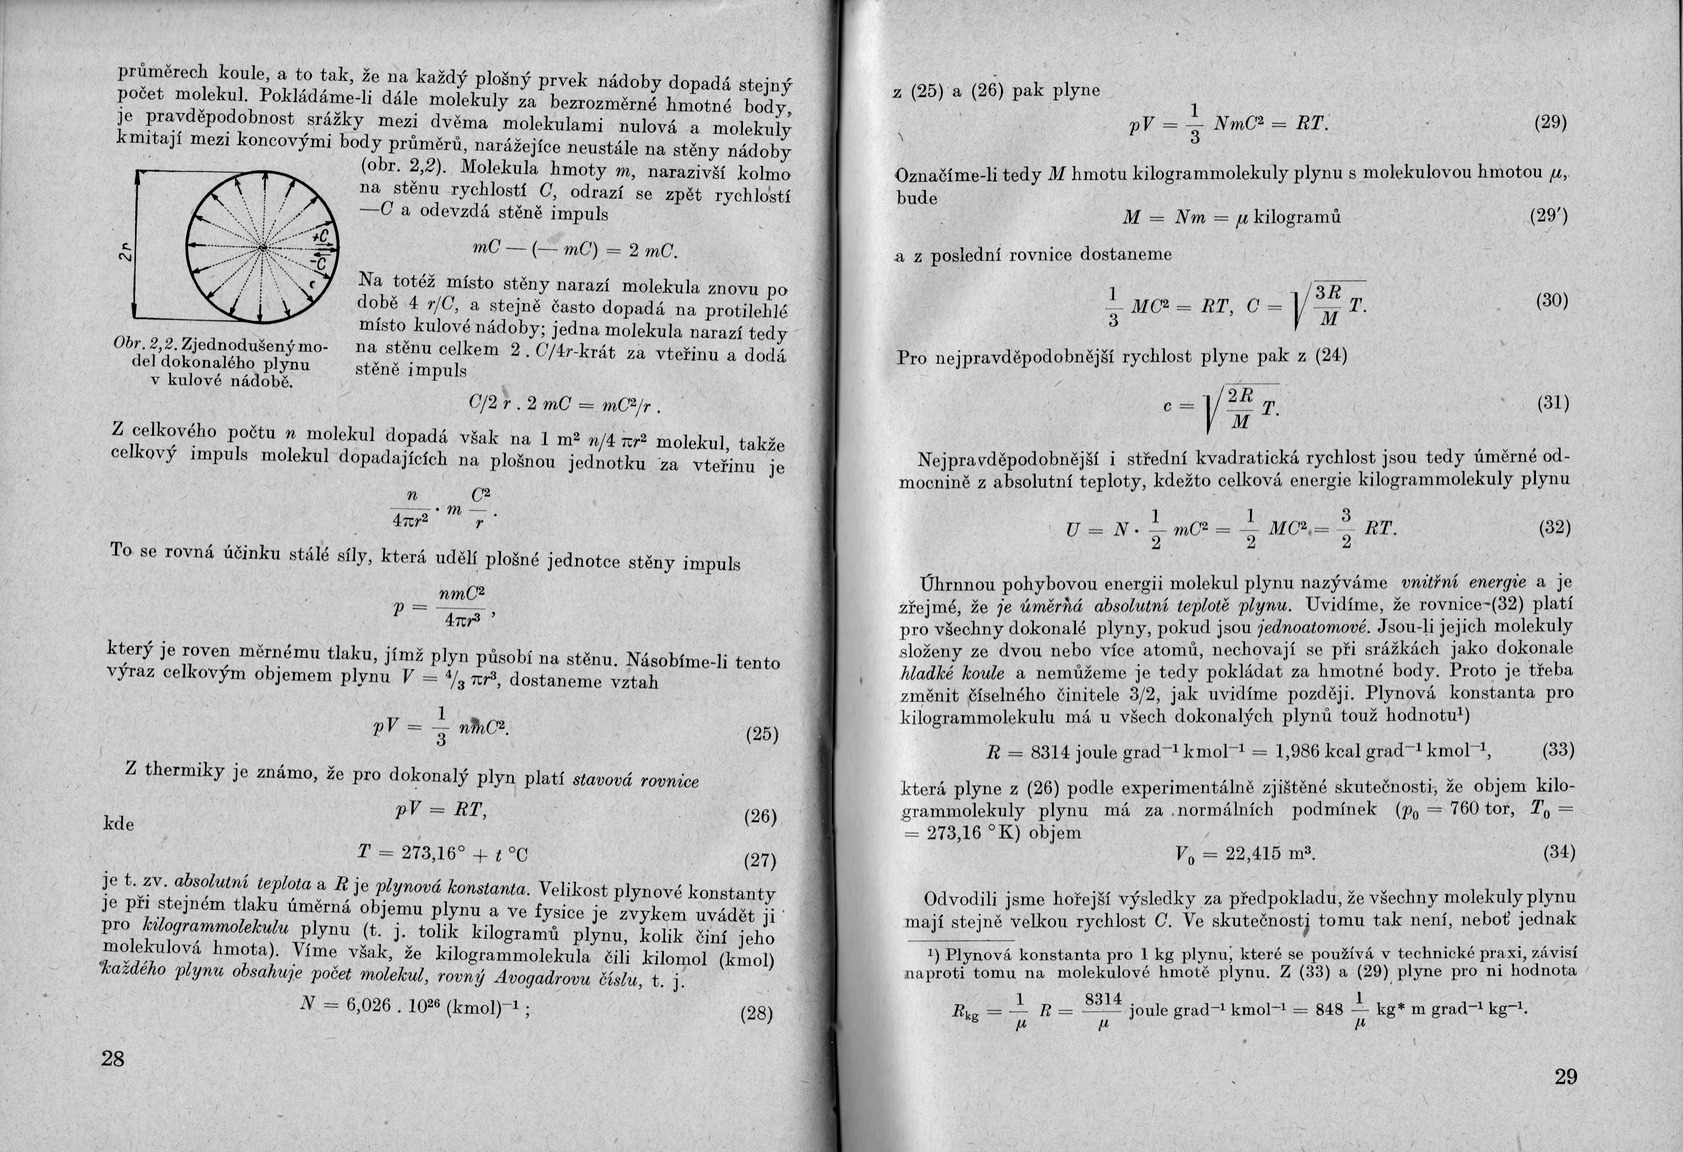 průměrech koule, a to tak, že na každý plošný prvek nádoby dopadá stejný
počet molekul. Pokládáme-li dále molekuly za bezrozměrné hmotné body,
je pravděpodobnost srážky mezi dvěma molekulami nulová a molekuly
kmitají mezi koncovými body průměrů, narážejíce neustále na stěny nádoby
(obr. 2,2). Molekula hmoty m, narazivší kolmo
na stěnu rychlostí C, odrazí se zpět rychlostí
—C a odevzdá stěně impuls
mC — (— mC) = 2 mC.
Na totéž místo stěny narazí molekula znovu po
době 4 r/C, a stejně často dopadá na protilehlé
místo kulové nádoby; jedna molekula narazí tedy
na stěnu celkem 2 . C/4r-krát za vteřinu a dodá
stěně impuls
2r
+C
-C
Obr. 2,2. Zjednodušený mo-
del dokonalého plynu
v kulové nádobě.
C/2 r . 2 mC = mC²/r .
Z celkového počtu n molekul dopadá však na 1 m² n/4 πr² molekul, takže
celkový impuls molekul dopadajících na plošnou jednotku za vteřinu je
n/4πr² · m C²/r .
To se rovná účinku stálé síly, která udělí plošné jednotce stěny impuls
p = nmC²/4πr³ ,
který je roven měrnému tlaku, jímž plyn působí na stěnu. Násobíme-li tento
výraz celkovým objemem plynu V = 4/3 πr³, dostaneme vztah
pV = 1/3 nmC². (25)
Z thermiky je známo, že pro dokonalý plyn platí stavová rovnice
pV = RT, (26)
kde
T = 273,16° + t °C (27)
je t. zv. absolutní teplota a R je plynová konstanta. Velikost plynové konstanty
je při stejném tlaku úměrná objemu plynu a ve fysice je zvykem uvádět ji
pro kilogrammolekulu plynu (t. j. tolik kilogramů plynu, kolik činí jeho
molekulová hmota). Víme však, že kilogrammolekula čili kilomol (kmol)
každého plynu obsahuje počet molekul, rovný Avogadrovu číslu, t. j.
N = 6,026 . 10²⁶ (kmol)⁻¹ ; (28)
28
z (25) a (26) pak plyne
pV = 1/3 NmC² = RT. (29)
Označíme-li tedy M hmotu kilogrammolekuly plynu s molekulovou hmotou μ,
bude
M = Nm = μ kilogramů (29′)
a z poslední rovnice dostaneme
1/3 MC² = RT, C = √(3R/M T). (30)
Pro nejpravděpodobnější rychlost plyne pak z (24)
c = √(2R/M T). (31)
Nejpravděpodobnější i střední kvadratická rychlost jsou tedy úměrné od-
mocnině z absolutní teploty, kdežto celková energie kilogrammolekuly plynu
U = N · 1/2 mC² = 1/2 MC² = 3/2 RT. (32)
Úhrnnou pohybovou energii molekul plynu nazýváme vnitřní energie a je
zřejmé, že je úměrná absolutní teplotě plynu. Uvidíme, že rovnice (32) platí
pro všechny dokonalé plyny, pokud jsou jednoatomové. Jsou-li jejich molekuly
složeny ze dvou nebo více atomů, nechovají se při srážkách jako dokonale
hladké koule a nemůžeme je tedy pokládat za hmotné body. Proto je třeba
změnit číselného činitele 3/2, jak uvidíme později. Plynová konstanta pro
kilogrammolekulu má u všech dokonalých plynů touž hodnotu¹)
R = 8314 joule grad⁻¹ kmol⁻¹ = 1,986 kcal grad⁻¹ kmol⁻¹, (33)
která plyne z (26) podle experimentálně zjištěné skutečnosti, že objem kilo-
grammolekuly plynu má za normálních podmínek (p₀ = 760 tor, T₀ =
= 273,16 °K) objem
V₀ = 22,415 m³. (34)
Odvodili jsme hořejší výsledky za předpokladu, že všechny molekuly plynu
mají stejně velkou rychlost C. Ve skutečnosti tomu tak není, neboť jednak
¹) Plynová konstanta pro 1 kg plynu, které se používá v technické praxi, závisí
naproti tomu na molekulové hmotě plynu. Z (33) a (29) plyne pro ni hodnota
Rkg = 1/μ R = 8314/μ joule grad⁻¹ kmol⁻¹ = 848 1/μ kg* m grad⁻¹ kg⁻¹.
29